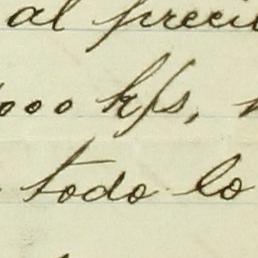 al preci
000 k/s,
todo lo